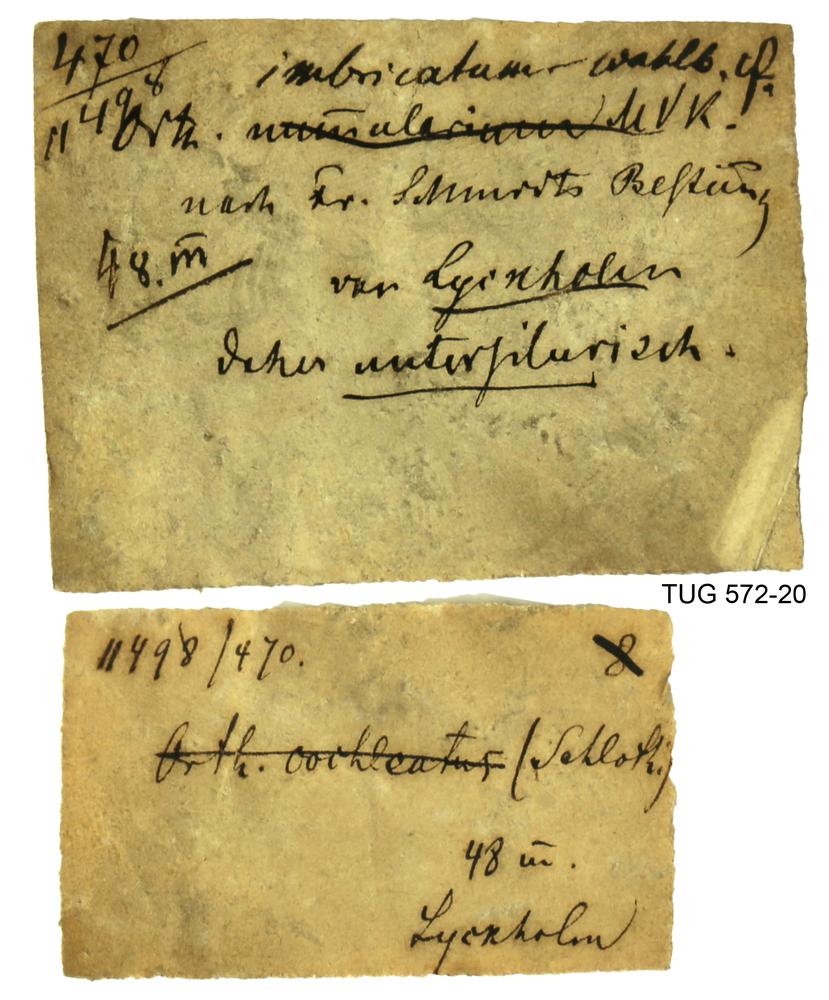 470
imbricatum wahlb. cf.
11498 Orth. nummularium MVK.
nach Fr. Schmidts Bestimng
48. m̄
von Lyckholm
daher untersilurisch.
TUG 572-20
11498/470. 8
Orth. cochleatus (Schloth.)
48 m̄.
Lyckholm